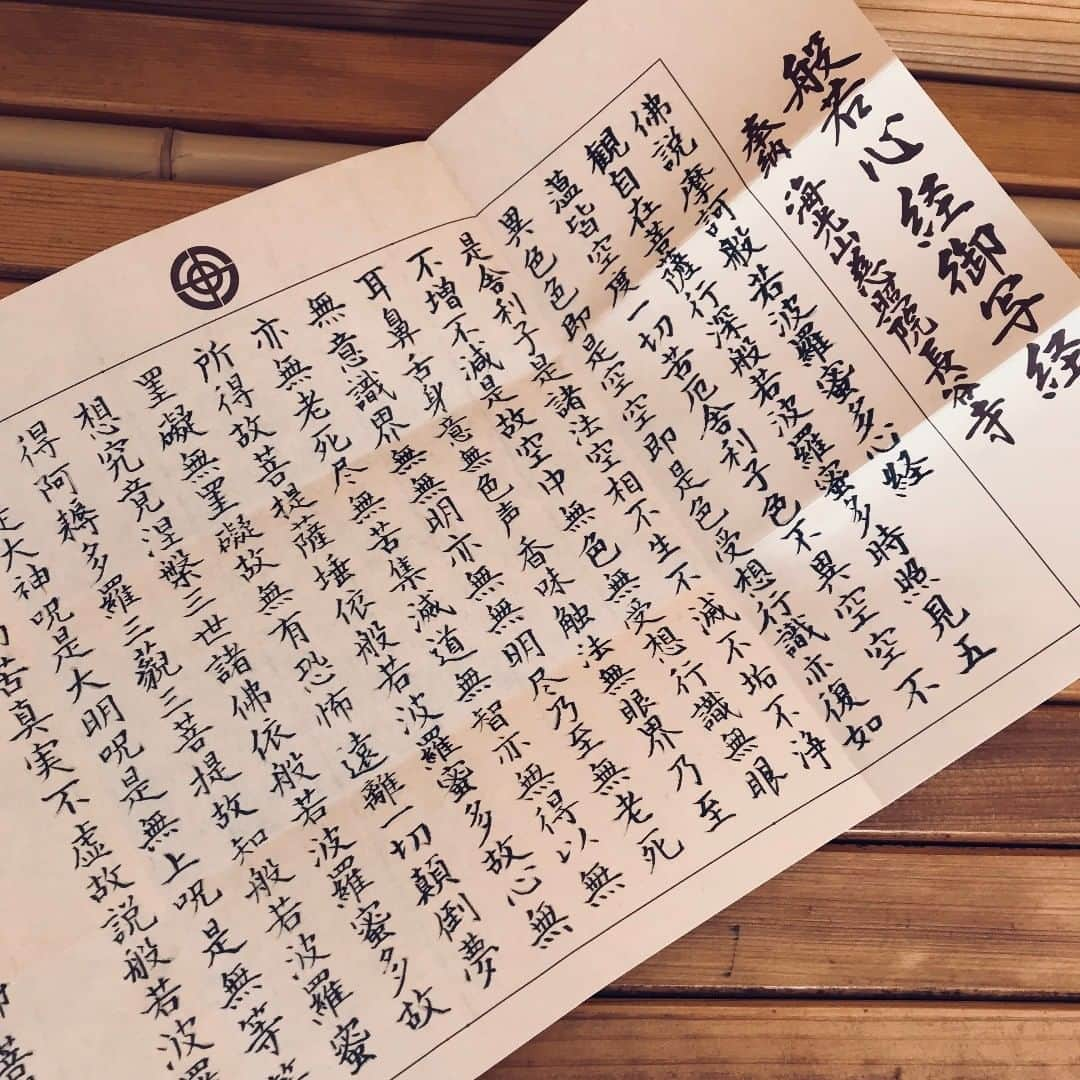 般若心経御写経
奉納 海光山慈照院長谷寺
佛説摩訶般若波羅蜜多心経
観自在菩薩行深般若波羅蜜多時照見五
蘊皆空度一切苦厄舎利子色不異空空不
異色色即是空空即是色受想行識亦復如
是舎利子是諸法空相不生不滅不垢不浄
不増不減是故空中無色無受想行識無眼
耳鼻舌身意無色声香味触法無眼界乃至
無意識界無無明亦無無明尽乃至無老死
亦無老死尽無苦集滅道無智亦無得以無
所得故菩提薩埵依般若波羅蜜多故心無
罣礙無罣礙故無有恐怖遠離一切顛倒夢
想究竟涅槃三世諸佛依般若波羅蜜多故
得阿耨多羅三藐三菩提故知般若波羅蜜
是大神呪是大明呪是無上呪是無等等
苦真実不虚故説般若波羅
菩